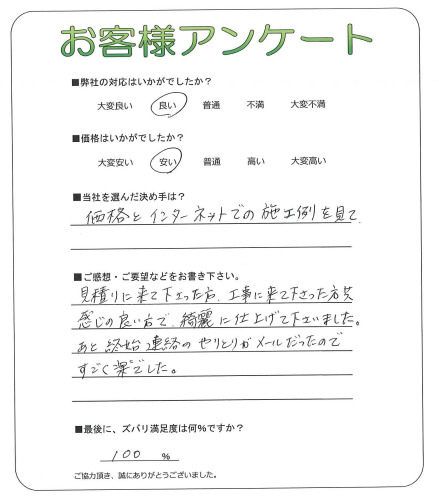 お客様アンケート
■弊社の対応はいかがでしたか？
大変良い 良い 普通 不満 大変不満
■価格はいかがでしたか？
大変安い 安い 普通 高い 大変高い
■当社を選んだ決め手は？
価格とインターネットでの施工例を見て
■ご感想・ご要望などをお書き下さい。
見積りに来て下さった方、工事に来て下さった方共
感じの良い方で、綺麗に仕上げて下さいました。
あと終始連絡のやりとりがメールだったので
すごく楽でした。
■最後に、ズバリ満足度は何％ですか？
100 ％
ご協力頂き、誠にありがとうございました。